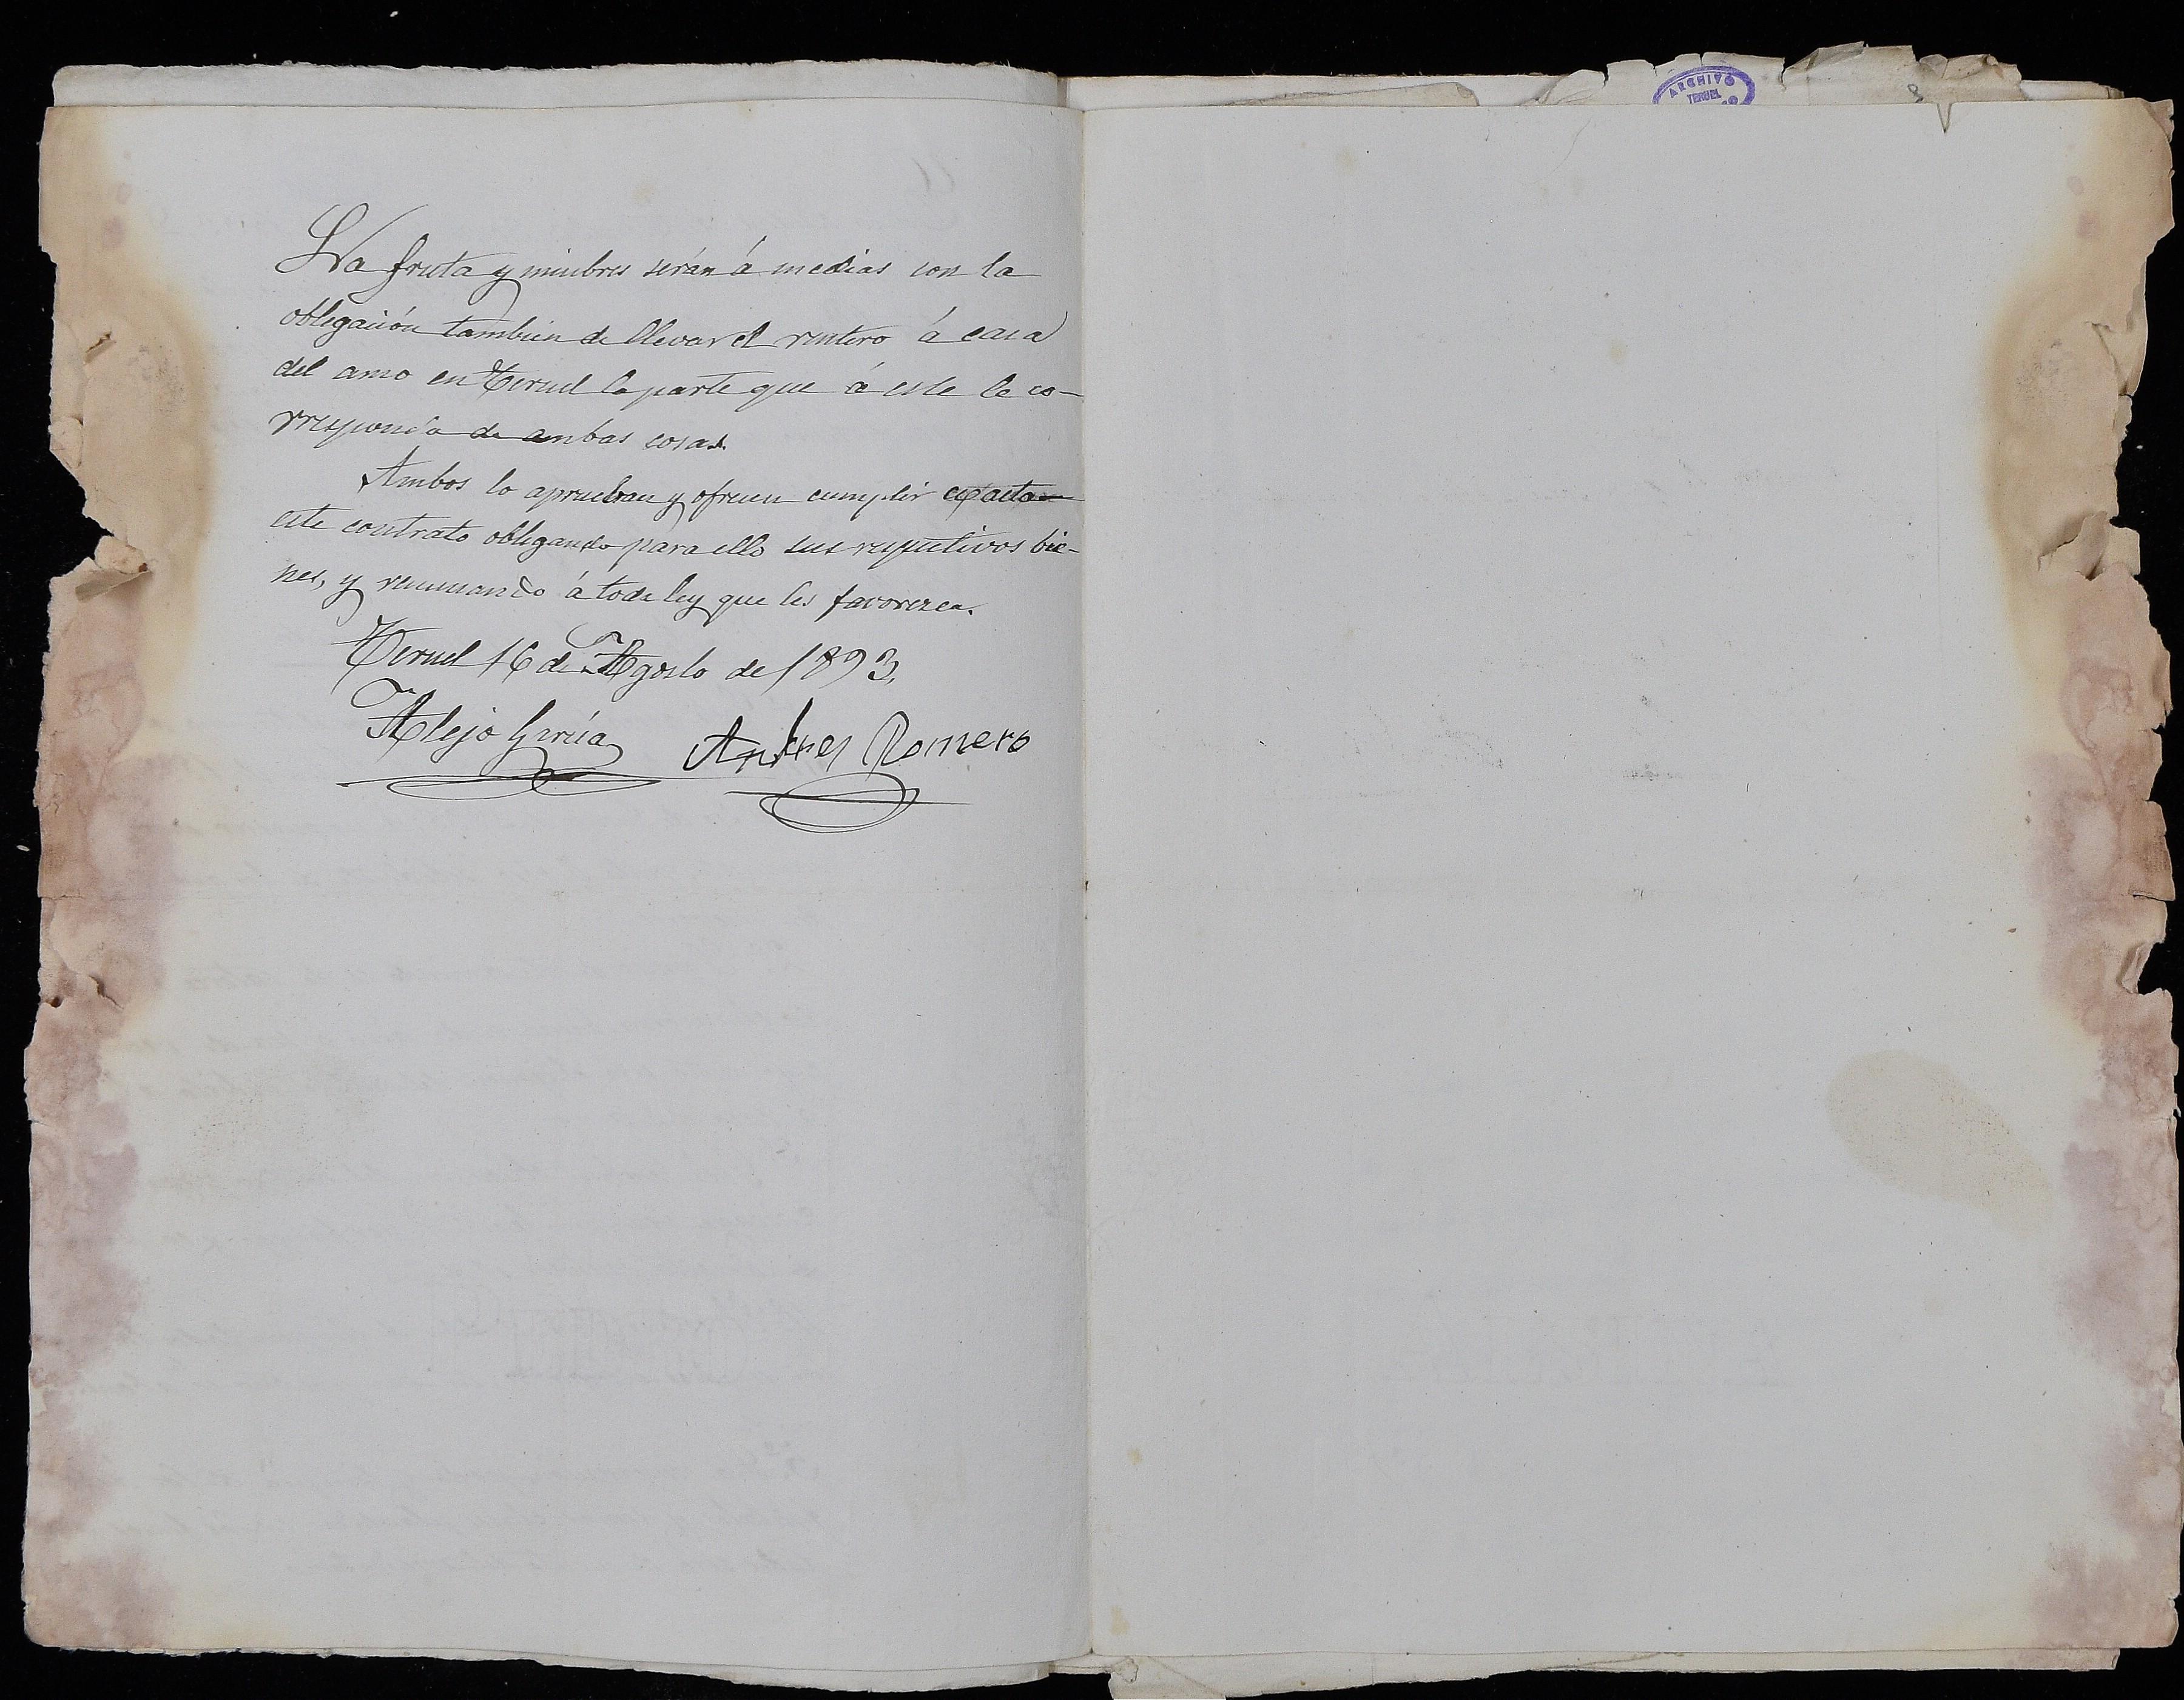 ARCHIVO
TERUEL
La fruta y mimbres serán á medias con la
obligación tambien de llevar el rentero á casa
del amo en Teruel la parte que á este le co-
rresponda de ambas cosas.
Ambos lo aprueban y ofrecen cumplir exacta
este contrato obligando para ello sus respectivos bie-
nes, y renunciando á toda ley que les favorezca.
Teruel 16 de Agosto de 1893,
Alejo García Andres Romero